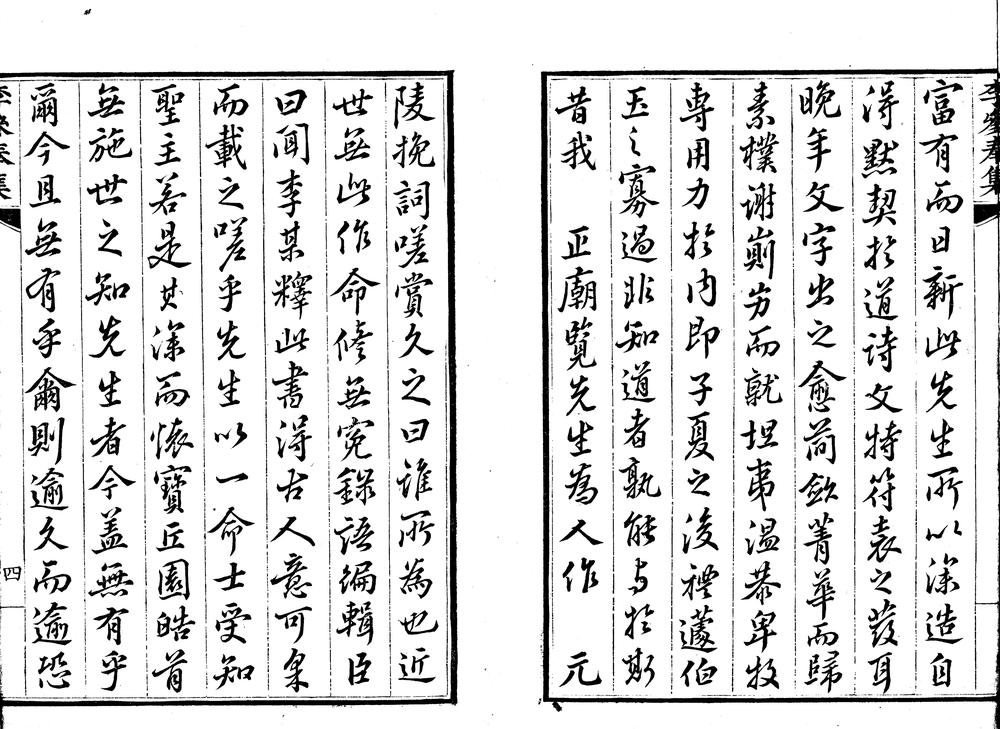 富有而日新此先生所以深造自
得默契於道詩文特符表之發耳
晚年文字出之愈簡斂菁華而歸
素樸謝崱屴而就坦夷溫恭卑牧
專用力於內即子夏之後禮蘧伯
玉之寡過非知道者孰能与於斯
昔我 正廟覽先生為人作 元
陵挽詞嗟賞久之曰誰所為也近
世無此作命修無寃錄語編輯臣
曰聞李某釋此書得古人意可來
而載之嗟乎先生以一命士受知
聖主若是其深而懷寶丘園皓首
無施世之知先生者今盖無有乎
爾今且無有乎爾則逾久而逾恐
四